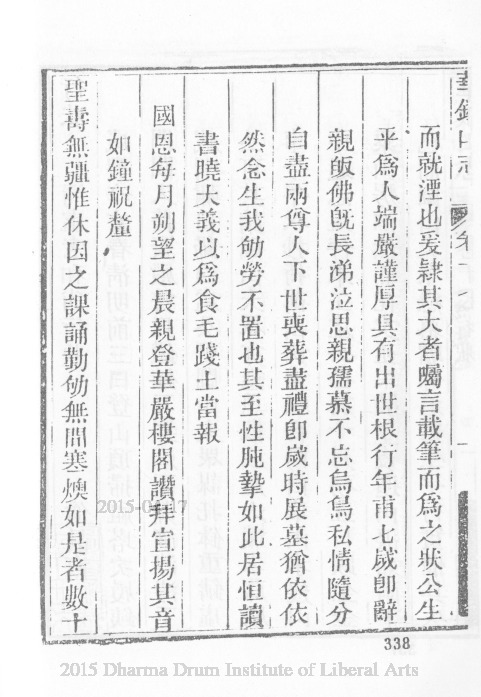 華銀山志 卷十
而就湮也爰隷其大者囑言載筆而爲之狀公生
平爲人端嚴謹厚具有出世根行年甫七歲卽辭
親皈佛旣長涕泣思親孺慕不忘烏烏私情隨分
自盡兩尊人下世喪葬盡禮卽歲時展墓猶依依
然念生我劬勞不置也其至性肫摯如此居恒讀
書曉大義以爲食毛踐土當報
國恩每月朔望之晨親登華嚴樓閣讚拜宣揚其音
如鐘祝釐
聖壽無疆惟休因之課誦勤劬無間塞燠如是者數十
338
2015-04-17
2015 Dharma Drum Institute of Liberal Arts